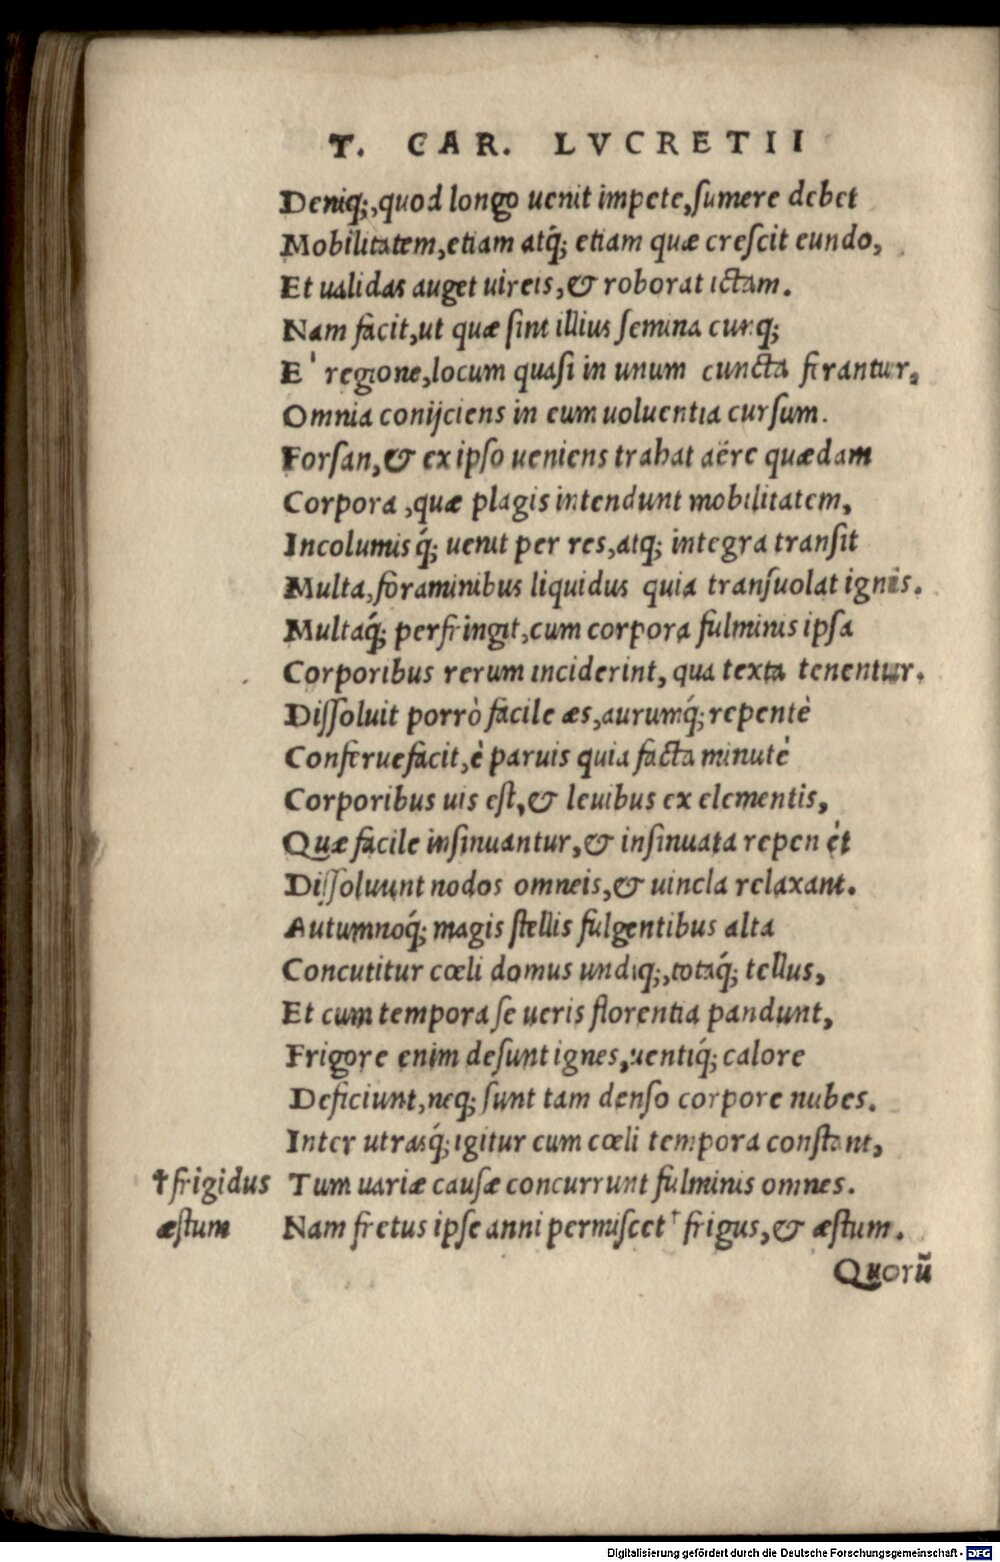 T. CAR. LVCRETII
Deniq;, quod longo uenit impete, sumere debet
Mobilitatem, etiam atq́; etiam quæ crescit eundo,
Et ualidas auget uireis, & roborat ictam.
Nam facit, ut quæ sint illius semina cunq;
E' regione, locum quasi in unum cuncta ferantur,
Omnia conijciens in eum uoluentia cursum.
Forsan, & ex ipso ueniens trahat aëre quædam
Corpora, quæ plagis intendunt mobilitatem,
Incolumisq́; uenit per res, atq; integra transit
Multa, foraminibus liquidus quia transuolat ignis.
Multaq́; perfringit, cum corpora fulminis ipsa
Corporibus rerum inciderint, qua texta tenentur.
Dissoluit porrò facile æs, aurumq́; repentè
Conferuefacit, è paruis quia facta minutè
Corporibus uis est, & leuibus ex elementis,
Quæ facile insinuantur, & insinuata repen èt
Dissoluunt nodos omneis, & uincla relaxant.
Autumnoq́; magis stellis fulgentibus alta
Concutitur cœli domus undiq;, totaq́; tellus,
Et cum tempora se ueris florentia pandunt,
Frigore enim desunt ignes, uentiq́; calore
Deficiunt, neq; sunt tam denso corpore nubes.
Inter utrasq́; igitur cum cœli tempora constant,
†frigidus Tum uariæ causæ concurrunt fulminis omnes.
æstum Nam fretus ipse anni permiscet † frigus, & æstum.
Quorū
Digitalisierung gefördert durch die Deutsche Forschungsgemeinschaft - DFG